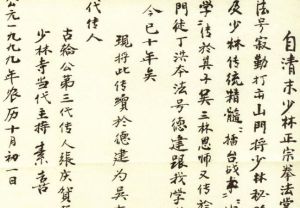 自清末少林正宗拳法堂
法号寂勤打出山门将少林秘
及少林传统精髓：擂台战
学：传於其子吴三林恩师又传於
门徒丁洪本法号德建跟我学
今已十年矣
现将此传赞於德建为吴古
代传人
古轮公第三代传人张庆贺
少林寺当代主持素喜
公元一九九九年农历十月初一日